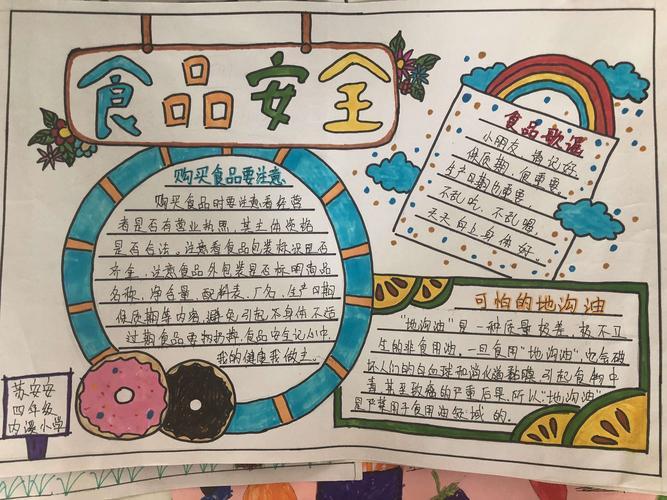 食品安全
购买食品要注意
购买食品时要注意看经营
者是否有营业执照，其主体资格
是否合法。注意看食品包装标识是否
齐全，注意食品外包装是否标明商品
名称、净含量、配料表、厂名、生产日期
保质期等内容，避免引起不身体不适
过期食品要扔掉，食品安全记心中，
我的健康我做主。
食品歌谣
小朋友 请记好
保质期，很重要。
生产日期也重要
不乱吃、不乱喝，
天天向上身体好。
可怕的地沟油
"地沟油"是一种质量极差，极不卫
生的非食用油，一旦食用"地沟油"，它会破
坏人们的白血球和消化道黏膜，引起食物中
毒，甚至致癌的严重后果，所以"地沟油"
是严禁用于食用油领域的。
苏安安
四年级
内漫小学